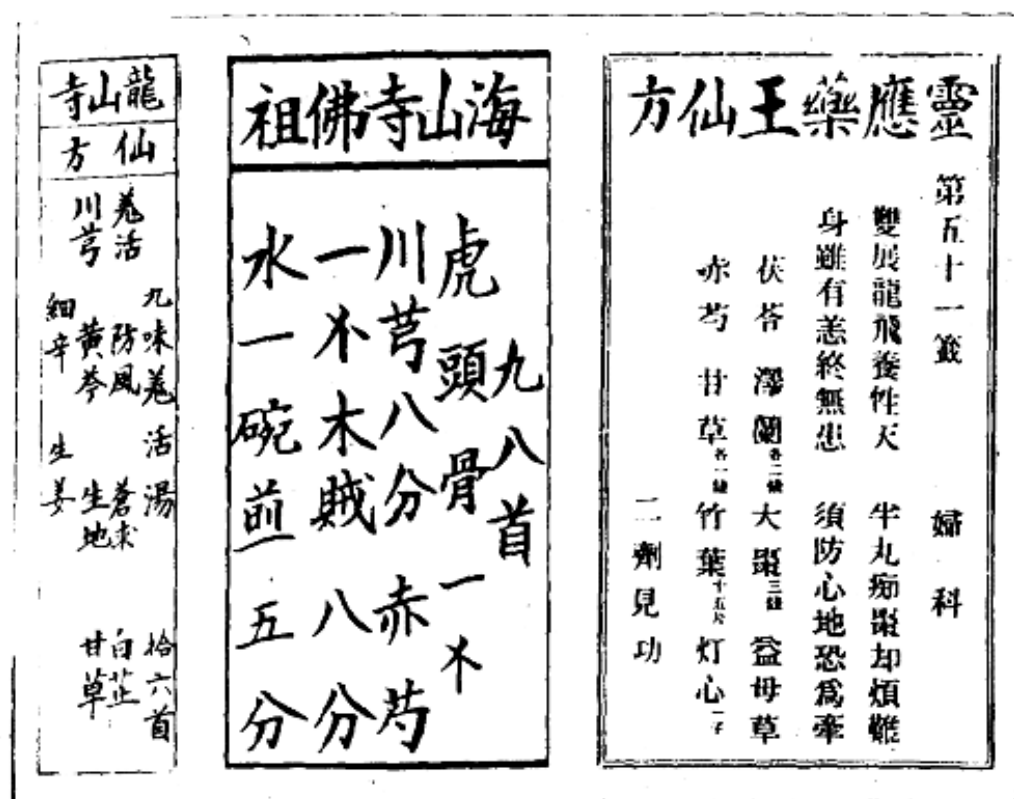 靈應藥王仙方
第五十一籤 婦科
雙展龍飛養性天 半丸痴棗却煩難
身雖有恙終無患 須防心地恐爲牽
茯苓 澤蘭各二錢 大棗三錢 益母草
赤芍 甘草各一錢 竹葉十五片 灯心
二劑見功
海山寺佛祖
九八首
虎頭骨一不
川芎八分赤芍
一不木賊八分
水一碗煎五分
龍山寺
仙方
九味羗活湯 拾六首
羗活 防風 蒼朮 白芷
川芎 黃芩 生地 甘草
細辛 生姜